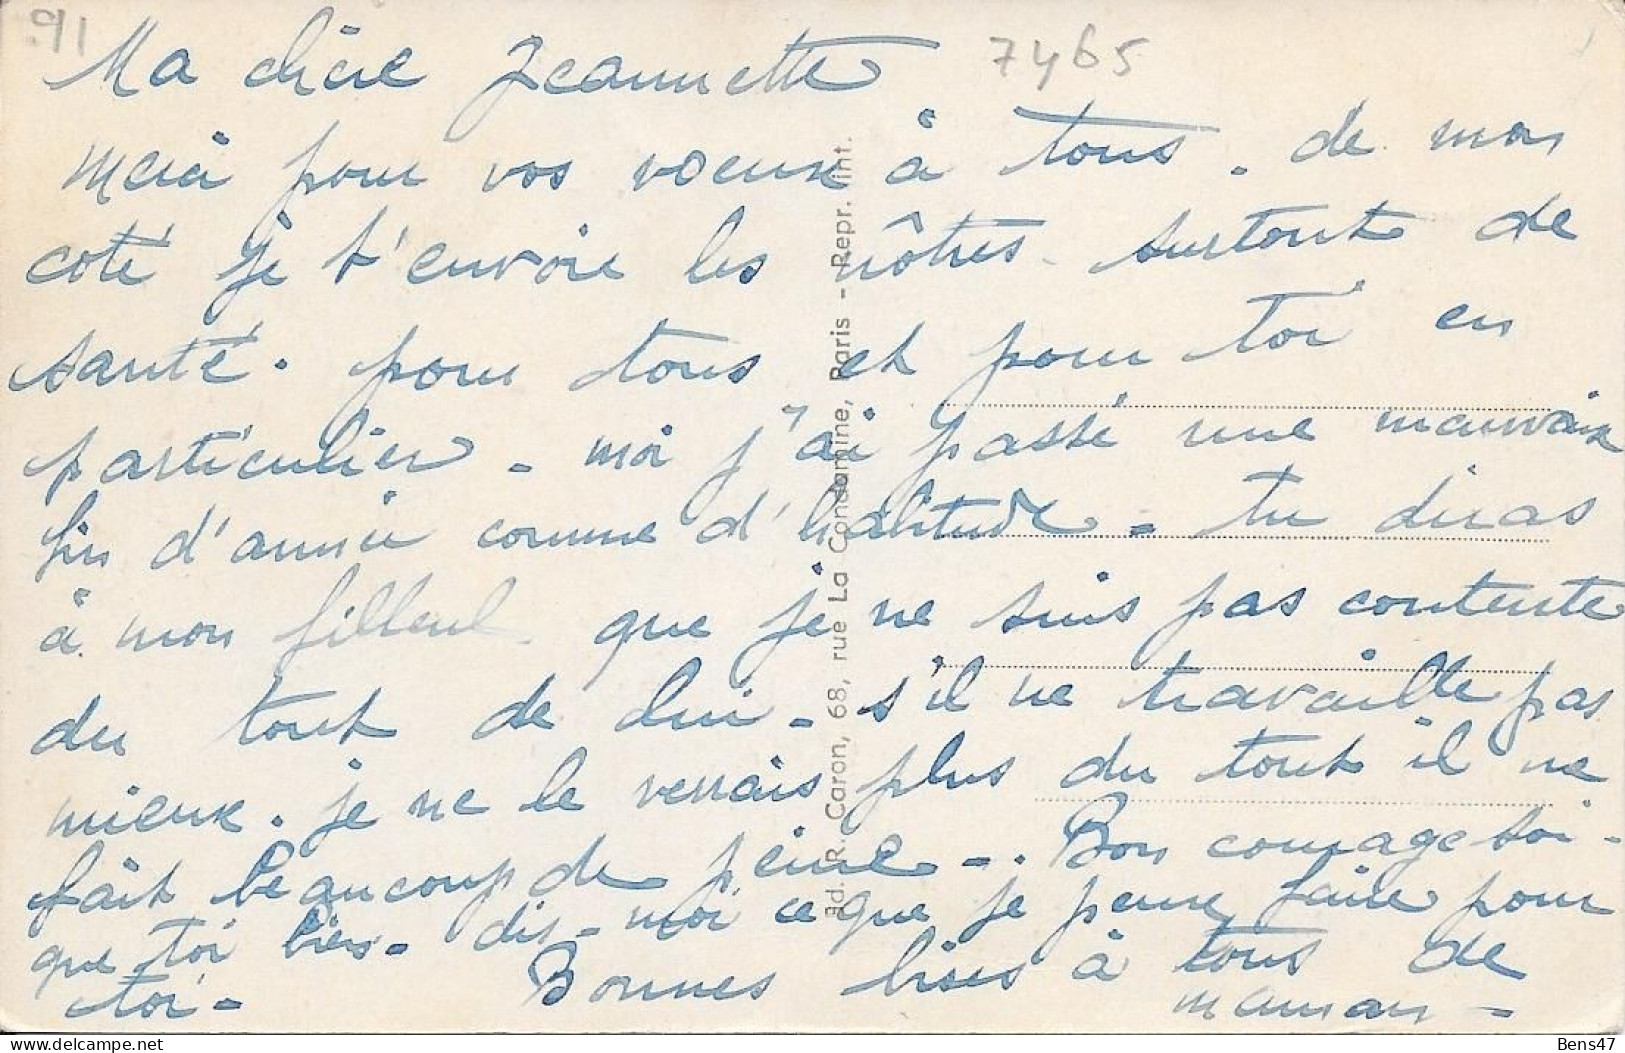 91
7465
Ma chère Jeannette
Merci pour vos voeux à tous. de mon
coté je t'envoie les nôtres. surtout de
santé. pour tous et pour toi en
particulier - moi j'ai passé une mauvaise
fin d'année comme d'habitude - tu diras
à mon filleul que je ne suis pas contente
du tout de lui - s'il ne travaille pas
mieux. je ne le verrais plus du tout il ne
fait beaucoup de peine -. Bon courage soi-
que toi bien - dis-moi ce que je peux faire pour
toi - Bonnes bises à tous de
maman -
Ed. R. Caron, 68, rue La Condamine, Paris - Repr. int.
Bens47